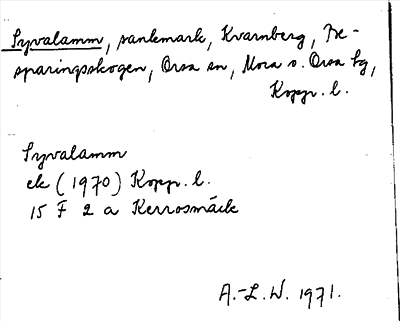 Syvalamm, sankmark, Kvarnberg, Be-
sparingsskogen, Orsa sn, Mora o. Orsa tg,
Kopp. l.
Syvalamm
ek (1970) Kopp. l.
15 F 2 a Kerrosmäck
A.-L. W. 1971.